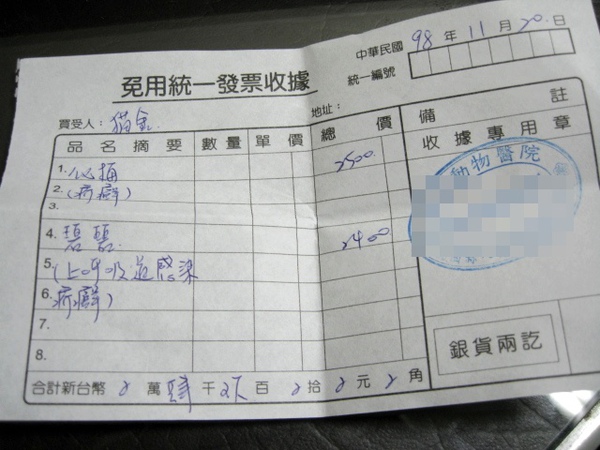 中華民國 98 年 11 月 20 日
免用統一發票收據
統一編號
買受人：貓
地址：
品名摘要 數量 單價 總價 備註
收據專用章
動物醫院
1. 心 2500
2. (疥癬)
3.
4. 2400
5. (上呼吸道感染
6. 疥癬)
7.
8.
銀貨兩訖
合計新台幣 萬 肆 千 百 拾 元 角